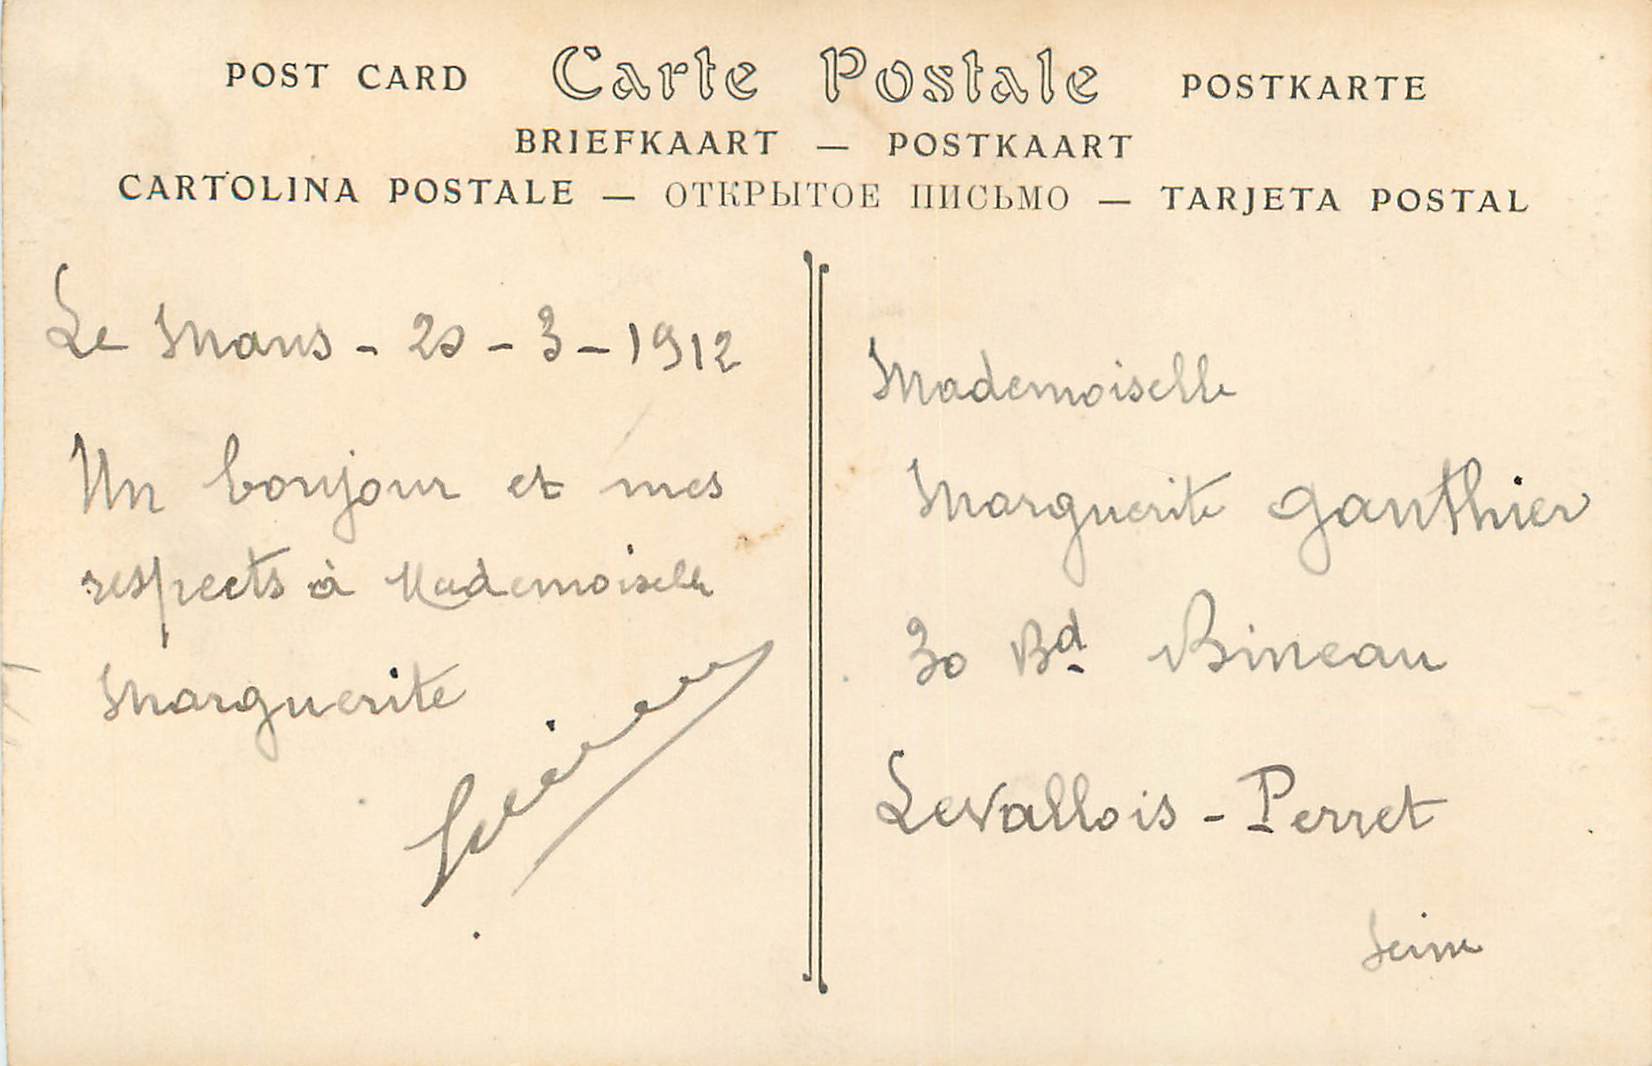 POST CARD Carte Postale POSTKARTE
BRIEFKAART — POSTKAART
CARTOLINA POSTALE — ОТКРЫТОЕ ПИСЬМО — TARJETA POSTAL
Le Mans - 20 - 3 - 1912
Un bonjour et mes
respects à Mademoiselle
Marguerite
Mademoiselle
Marguerite Gauthier
30 Bd Bineau
Levallois - Perret
Seine